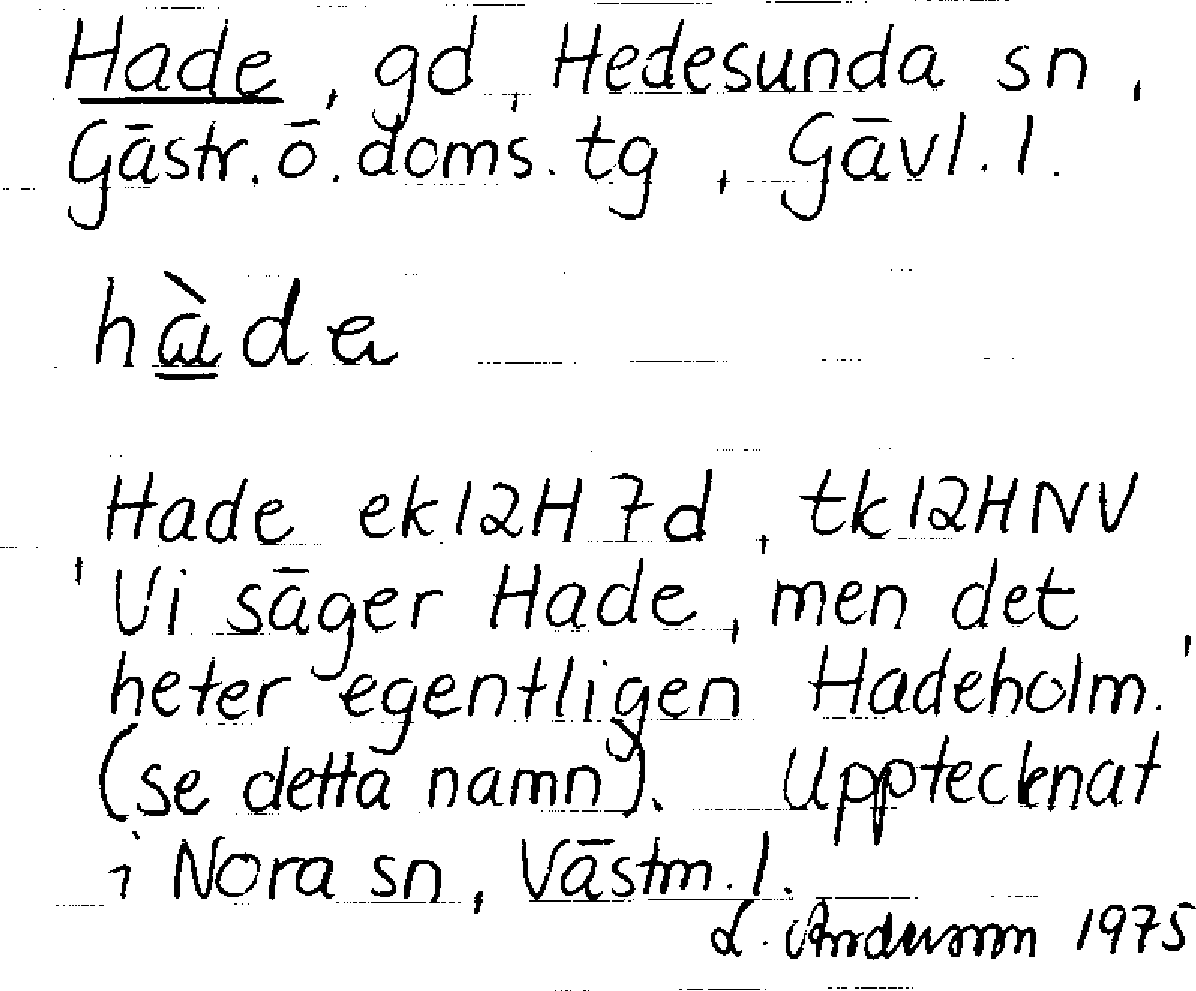 Hade, gd, Hedesunda sn,
Gästr. ö. doms. tg, Gävl. l.
hàde
Hade ek12H7d, tk12HNV
'Vi säger Hade, men det
heter egentligen Hadeholm.'
(se detta namn). Upptecknat
i Nora sn, Västm. l.
L. Andersson 1975